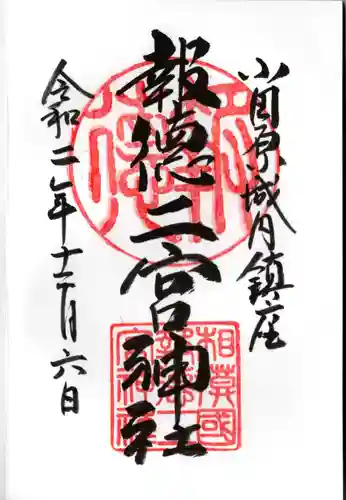 小田原城内鎮座
報徳二宮神社
令和二年十二月六日
相模國
報徳二
宮神社